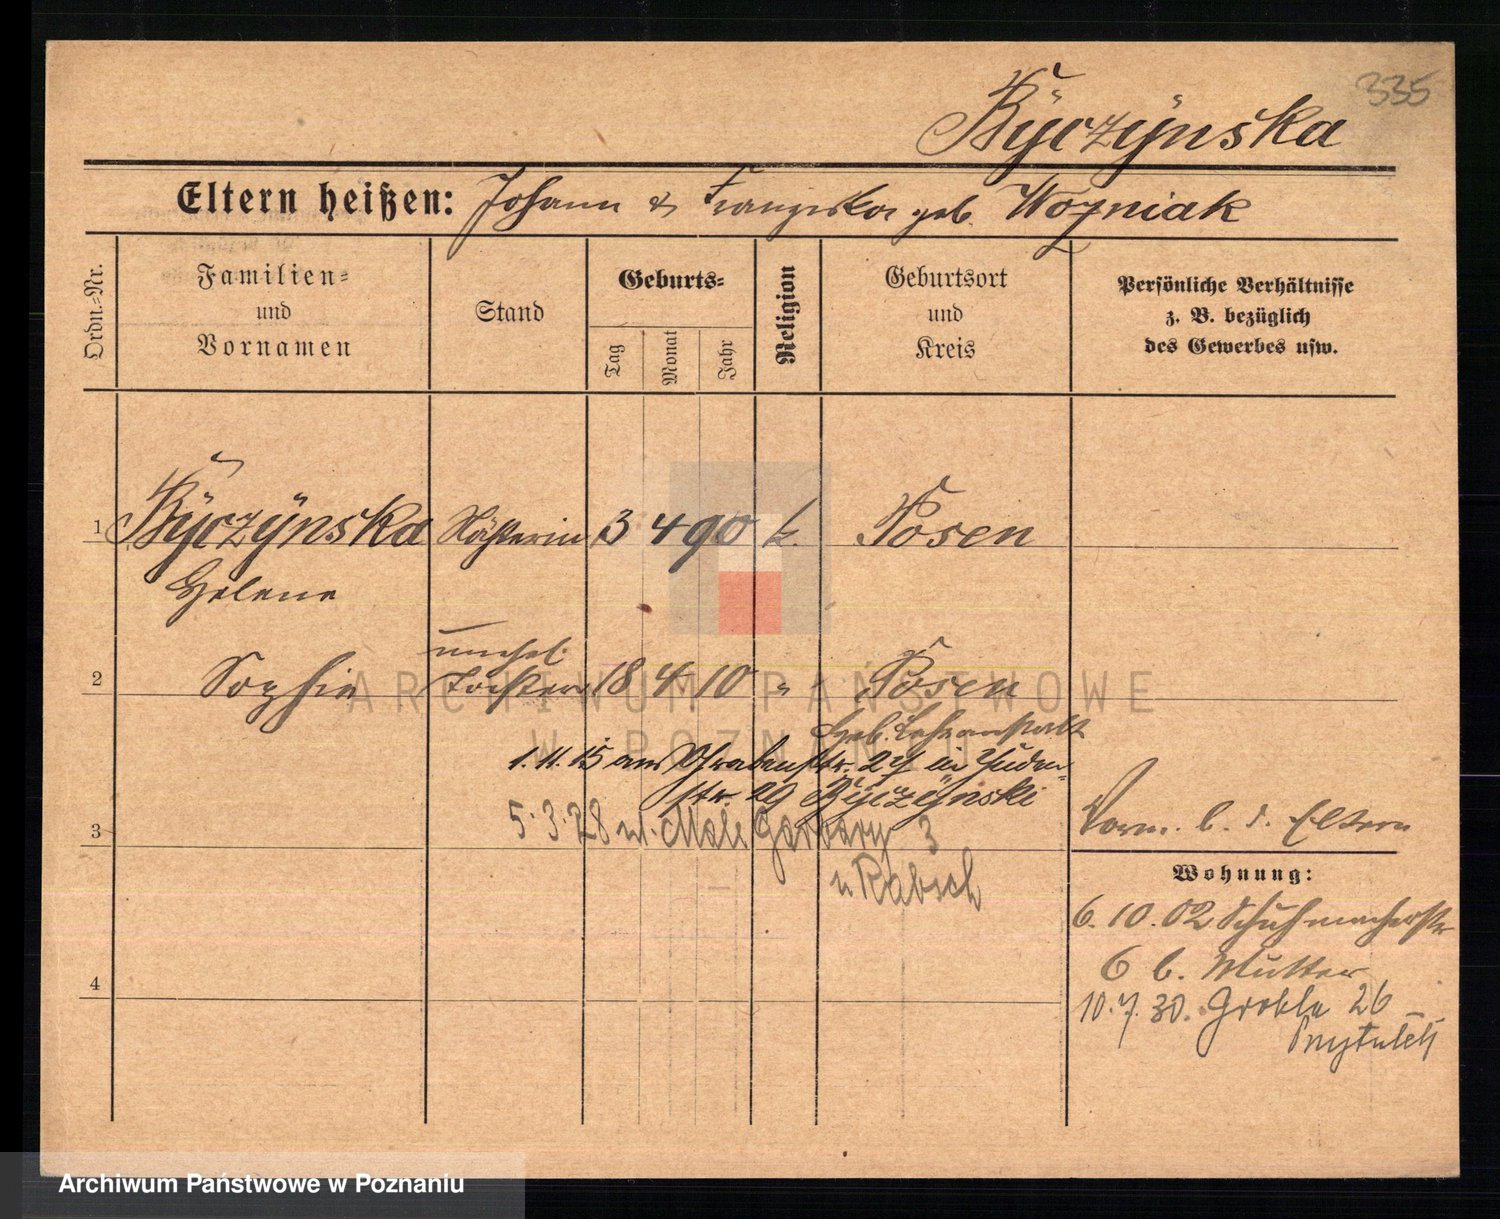 335
Byczynska
Eltern heißen: Johann & Franziska geb. Wozniak
Ordn.=Nr.
Familien=
und
Vornamen
Stand
Geburts=
Tag
Monat
Jahr
Religion
Geburtsort
und
Kreis
Persönliche Verhältnisse
z. B. bezüglich
des Gewerbes usw.
1 Byczynska Näherin 3 4 90 k. Posen
Helene
unehel.
2 Sophie Tochter 18 4 10 " Posen
Heb. Lehranstalt
1.11.15 aus Grabenstr. 27 in Juden-
str. 29 Byczynski
5.3.28 ul. Male Garbary 3
3
u Rabsch
Vorm. b. d. Eltern
Wohnung:
6.10.02 Schuhmacherstr
6 b. Mutter
10.7.30. Grobla 26
4
ARCHIWUM PAŃSTWOWE
W POZNANIU
Archiwum Państwowe w Poznaniu